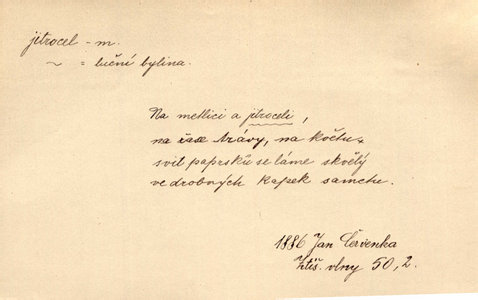 jitrocel - m.
~ = luční bylina.
Na metlici a jitroceli,
na trávy, na květu
svit paprsků se láme skvělý
ve drobných kapek sametu.
1886 Jan Červenka
Ztiš. vlny 50, 2.